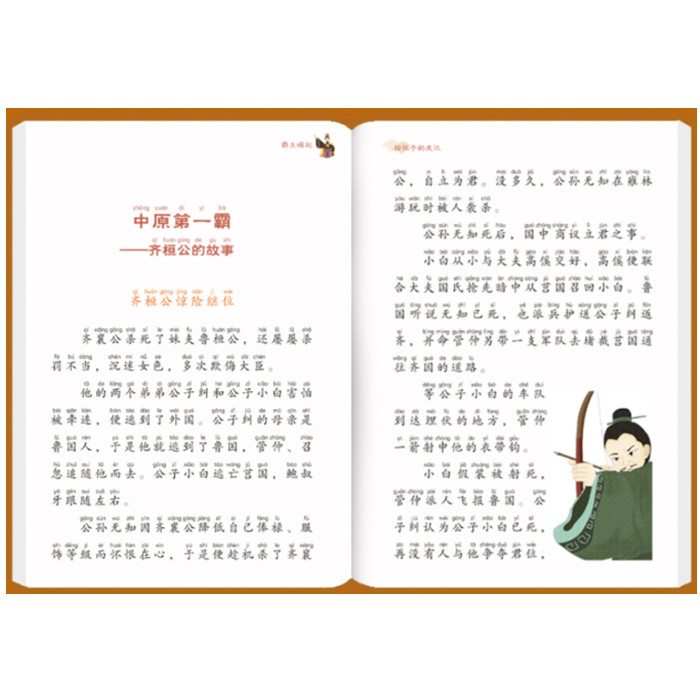 霸主崛起
中原第一霸
——齐桓公的故事
齐桓公惊险继位
齐襄公杀死了妹夫鲁桓公，还屡屡杀
罚不当，沉迷女色，多次欺侮大臣。
他的两个弟弟公子纠和公子小白害怕
被牵连，便逃到了外国。公子纠的母亲是
鲁国人，于是他就逃到了鲁国，管仲、召
忽追随他而去。公子小白逃亡莒国，鲍叔
牙跟随左右。
公孙无知因齐襄公降低自己俸禄、服
饰等级而怀恨在心，于是便趁机杀了齐襄
给孩子的史记
公，自立为君。没多久，公孙无知在雍林
游玩时被人袭杀。
公孙无知死后，国中商议立君之事。
小白从小与大夫高傒交好，高傒便联
合大夫国氏抢先暗中从莒国召回小白。鲁
国听说无知已死，也派兵护送公子纠返
齐，并命管仲另带一支军队去堵截莒国通
往齐国的道路。
等公子小白的车队
到达埋伏的地方，管仲
一箭射中他的衣带钩。
小白假装被射死，
管仲派人飞报鲁国。公
子纠认为公子小白已死，
再没有人与他争夺君位，